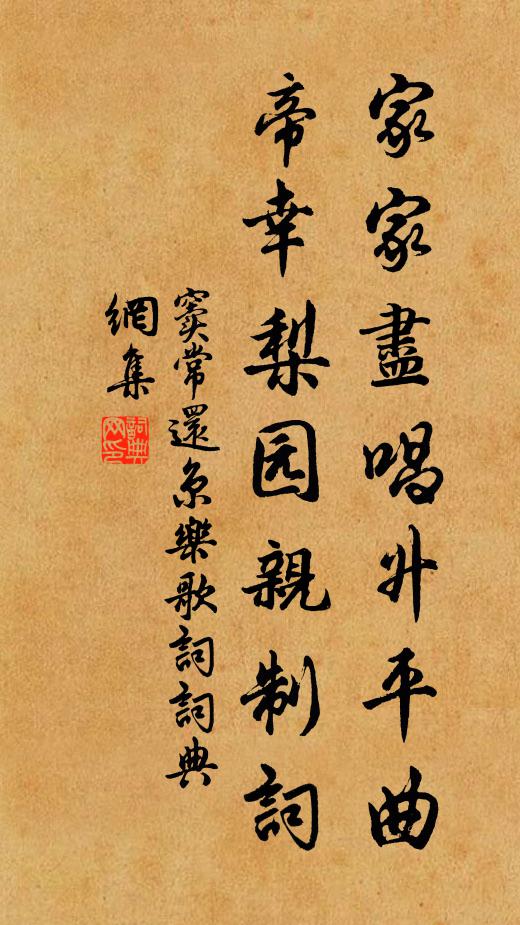 家家盡唱升平曲
帝幸梨园親制詞
窦常還京樂歌詞詞典
網集
詞典网印